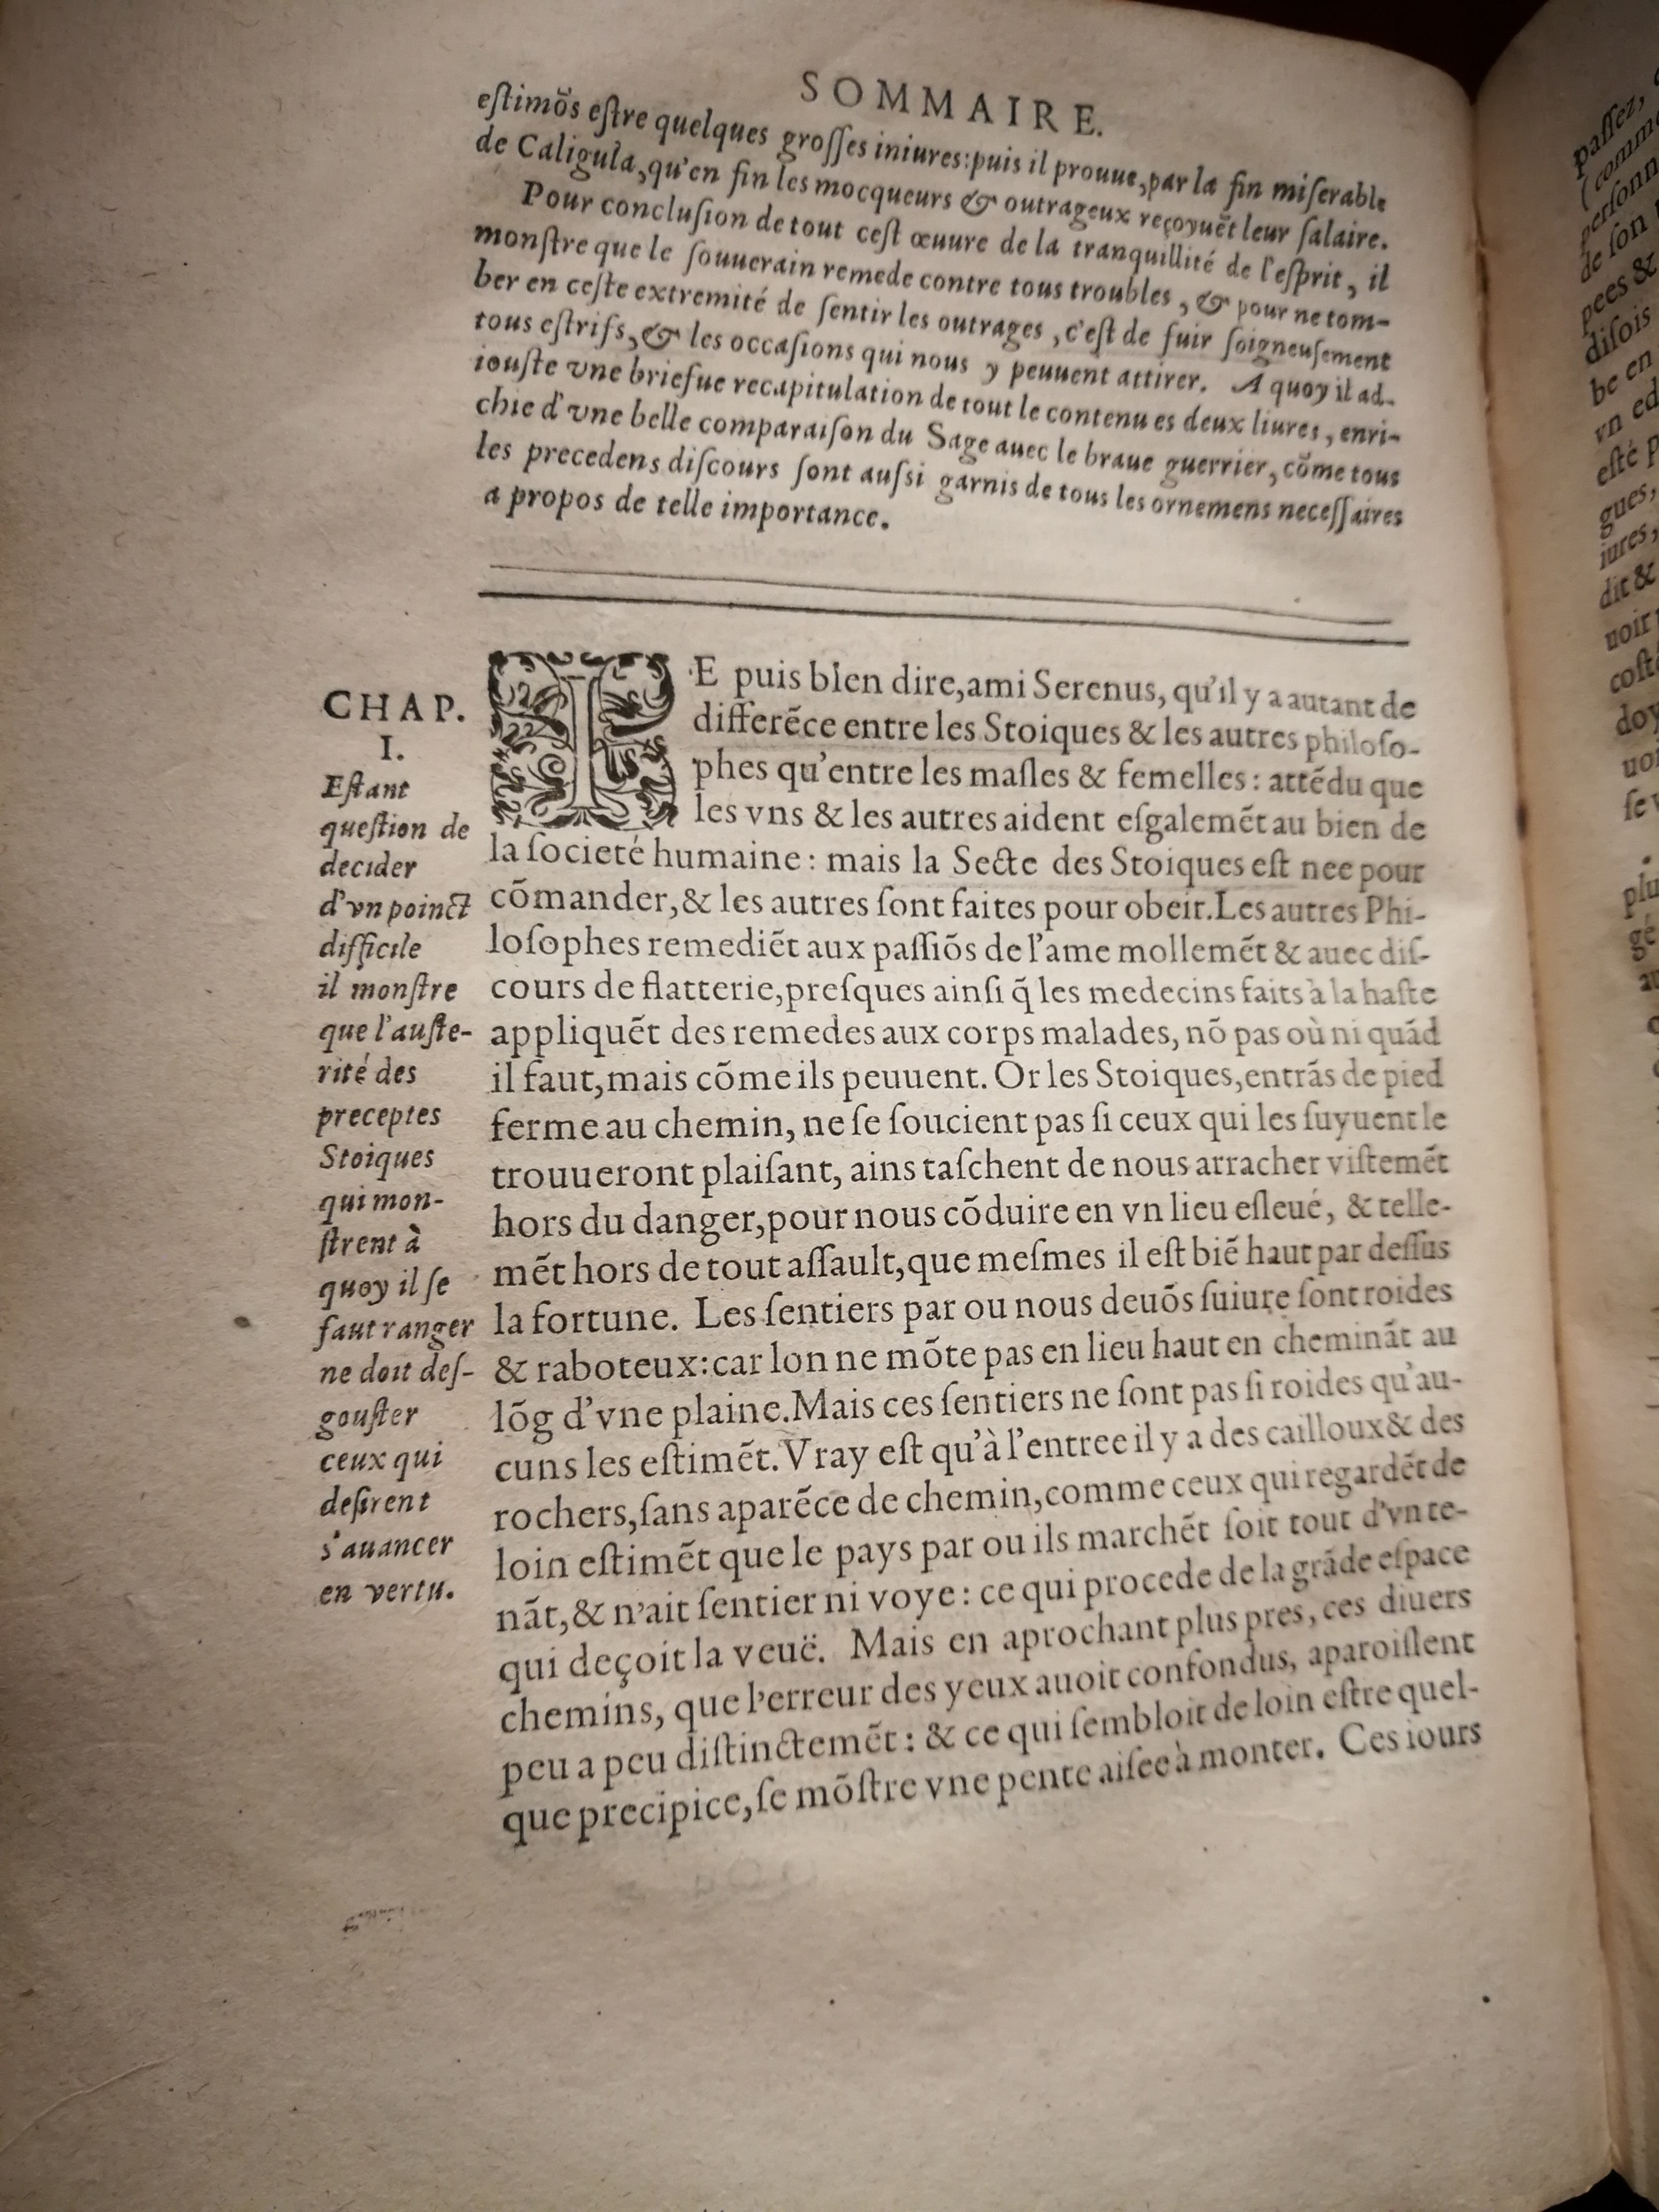 SOMMAIRE.
eſtimõs eſtre quelques groſſes iniures:puis il prouue,par la fin miſerable
de Caligula,qu'en fin les mocqueurs & outrageux reçoyuẽt leur ſalaire.
Pour concluſion de tout ceſt œuure de la tranquillité de l'eſprit, il
monſtre que le ſouuerain remede contre tous troubles, & pour ne tom-
ber en ceſte extremité de ſentir les outrages, c'eſt de fuir ſoigneuſement
tous eſtrifs,& les occaſions qui nous y peuuent attirer. A quoy il ad-
iouſte vne briefue recapitulation de tout le contenu es deux liures, enri-
chie d'vne belle comparaiſon du Sage auec le braue guerrier, cõme tous
les precedens diſcours ſont auſsi garnis de tous les ornemens neceſſaires
a propos de telle importance.
CHAP.
I.
Eſtant
queſtion de
decider
d'vn poinct
difficile
il monſtre
que l'auſte-
rité des
preceptes
Stoiques
qui mon-
ſtrent à
quoy il ſe
faut ranger
ne doit deſ-
gouſter
ceux qui
deſirent
s'auancer
en vertu.
IE puis bien dire,ami Serenus, qu'il y a autant de
differẽce entre les Stoiques & les autres philoſo-
phes qu'entre les maſles & femelles: attẽdu que
les vns & les autres aident eſgalemẽt au bien de
la ſocieté humaine: mais la Secte des Stoiques eſt nee pour
cõmander,& les autres ſont faites pour obeir.Les autres Phi-
loſophes remediẽt aux paſſiõs de l'ame mollemẽt & auec diſ-
cours de flatterie,preſques ainſi q̃ les medecins faits à la haſte
appliquẽt des remedes aux corps malades, nõ pas où ni quãd
il faut,mais cõme ils peuuent. Or les Stoiques,entrãs de pied
ferme au chemin, ne ſe ſoucient pas ſi ceux qui les ſuyuent le
trouueront plaiſant, ains taſchent de nous arracher viſtemẽt
hors du danger,pour nous cõduire en vn lieu eſleué, & telle-
mẽt hors de tout aſſault,que meſmes il eſt biẽ haut par deſſus
la fortune. Les ſentiers par ou nous deuõs ſuiure ſont roides
& raboteux:car lon ne mõte pas en lieu haut en cheminãt au
lõg d'vne plaine.Mais ces ſentiers ne ſont pas ſi roides qu'au-
cuns les eſtimẽt.Vray eſt qu'à l'entree il y a des cailloux& des
rochers,ſans aparẽce de chemin,comme ceux qui regardẽt de
loin eſtimẽt que le pays par ou ils marchẽt ſoit tout d'vn te-
nãt,& n'ait ſentier ni voye: ce qui procede de la grãde eſpace
qui deçoit la veuë. Mais en aprochant plus pres, ces diuers
chemins, que l'erreur des yeux auoit confondus, aparoiſſent
peu a peu diſtinctemẽt: & ce qui ſembloit de loin eſtre quel-
que precipice,ſe mõſtre vne pente aiſee à monter. Ces iours
paſſez,
de ſon
pees &
diſois
be en
vn ed
eſté
gues,
iures,
dit &
uoir
doy
plu